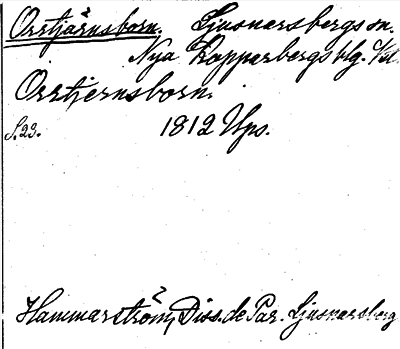 Orrtjärnsborn. Ljusnarsbergs sn.
Nya Kopparbergs blg.
Orrtjernsborn.
S. 23. 1812 Ups.
Hammarström, Diss. de Par. Ljusnarsberg